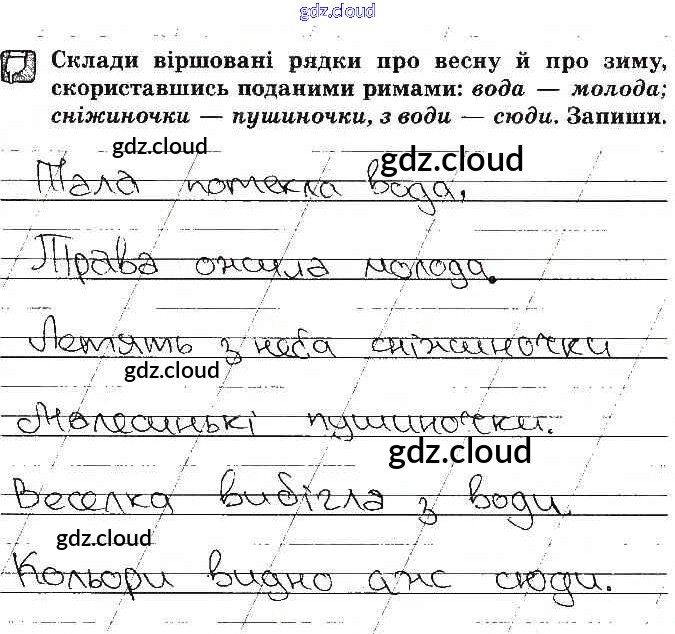 gdz.cloud
Склади віршовані рядки про весну й про зиму,
скориставшись поданими римами: вода — молода;
сніжиночки — пушиночки, з води — сюди. Запиши.
gdz.cloud
gdz.cloud
Тала потекла вода,
Трава ожила молода.
Летять з неба сніжиночки
gdz.cloud
Малесинькі пушиночки.
gdz.cloud
Веселка вибігла з води.
gdz.cloud
Кольори видно аж сюди.